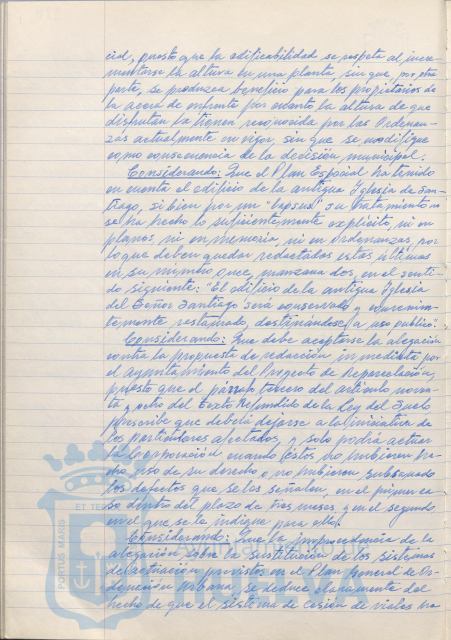 cial, puesto que la edificabilidad se respeta al incre-
mentarse la altura en una planta, sin que, por otra
parte, se produzca beneficio para los propietarios de
la acera de enfrente por cuanto la altura de que
disfrutan la tienen reconocida por las Ordenan-
zas actualmente en vigor, sin que se modifique
como consecuencia de la decisión municipal.
Considerando: Que el Plan Especial ha tenido
en cuenta el edificio de la antigua Iglesia de San-
tiago, si bien por un "lapsus" su tratamiento no
se ha hecho lo suficientemente explícito, ni en
planos, ni en memoria, ni en Ordenanzas, por
lo que deben quedar redactadas estas últimas
en su número once, manzana dos, en el senti-
do siguiente: "El edificio de la antigua Iglesia
del Señor Santiago será conservado y convenien-
temente restaurado, destinándose a uso público".
Considerando: Que debe aceptarse la alegación
contra la propuesta de redacción inmediata por
el ayuntamiento del Proyecto de Reparcelación,
puesto que el párrafo tercero del artículo noven-
ta y ocho del Texto Refundido de la Ley del Suelo
prescribe que deberá dejarse a la iniciativa de
los particulares afectados, y solo podrá actuar
la Corporación cuando éstos no hubieren he-
cho uso de su derecho o no hubieren subsanado
los defectos que se les señalen, en el primer ca-
so dentro del plazo de tres meses, y en el segundo
en el que se le indique para ello.
Considerando: Que la improcedencia de la
alegación sobre la sustitución de los sistemas
de actuación previstos en el Plan General de Or-
denación Urbana, se deduce claramente del
hecho de que el sistema de cesión de viales ha
PORTUS MARIS
ET TER